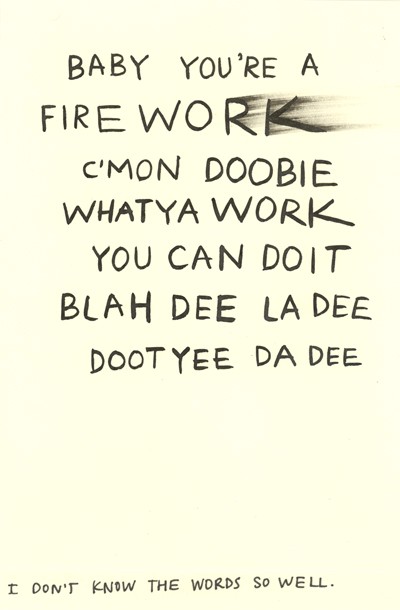 BABY YOU'RE A
FIREWORK
C'MON DOOBIE
WHATYA WORK
YOU CAN DO IT
BLAH DEE LA DEE
DOOTYEE DA DEE
I DON'T KNOW THE WORDS SO WELL.